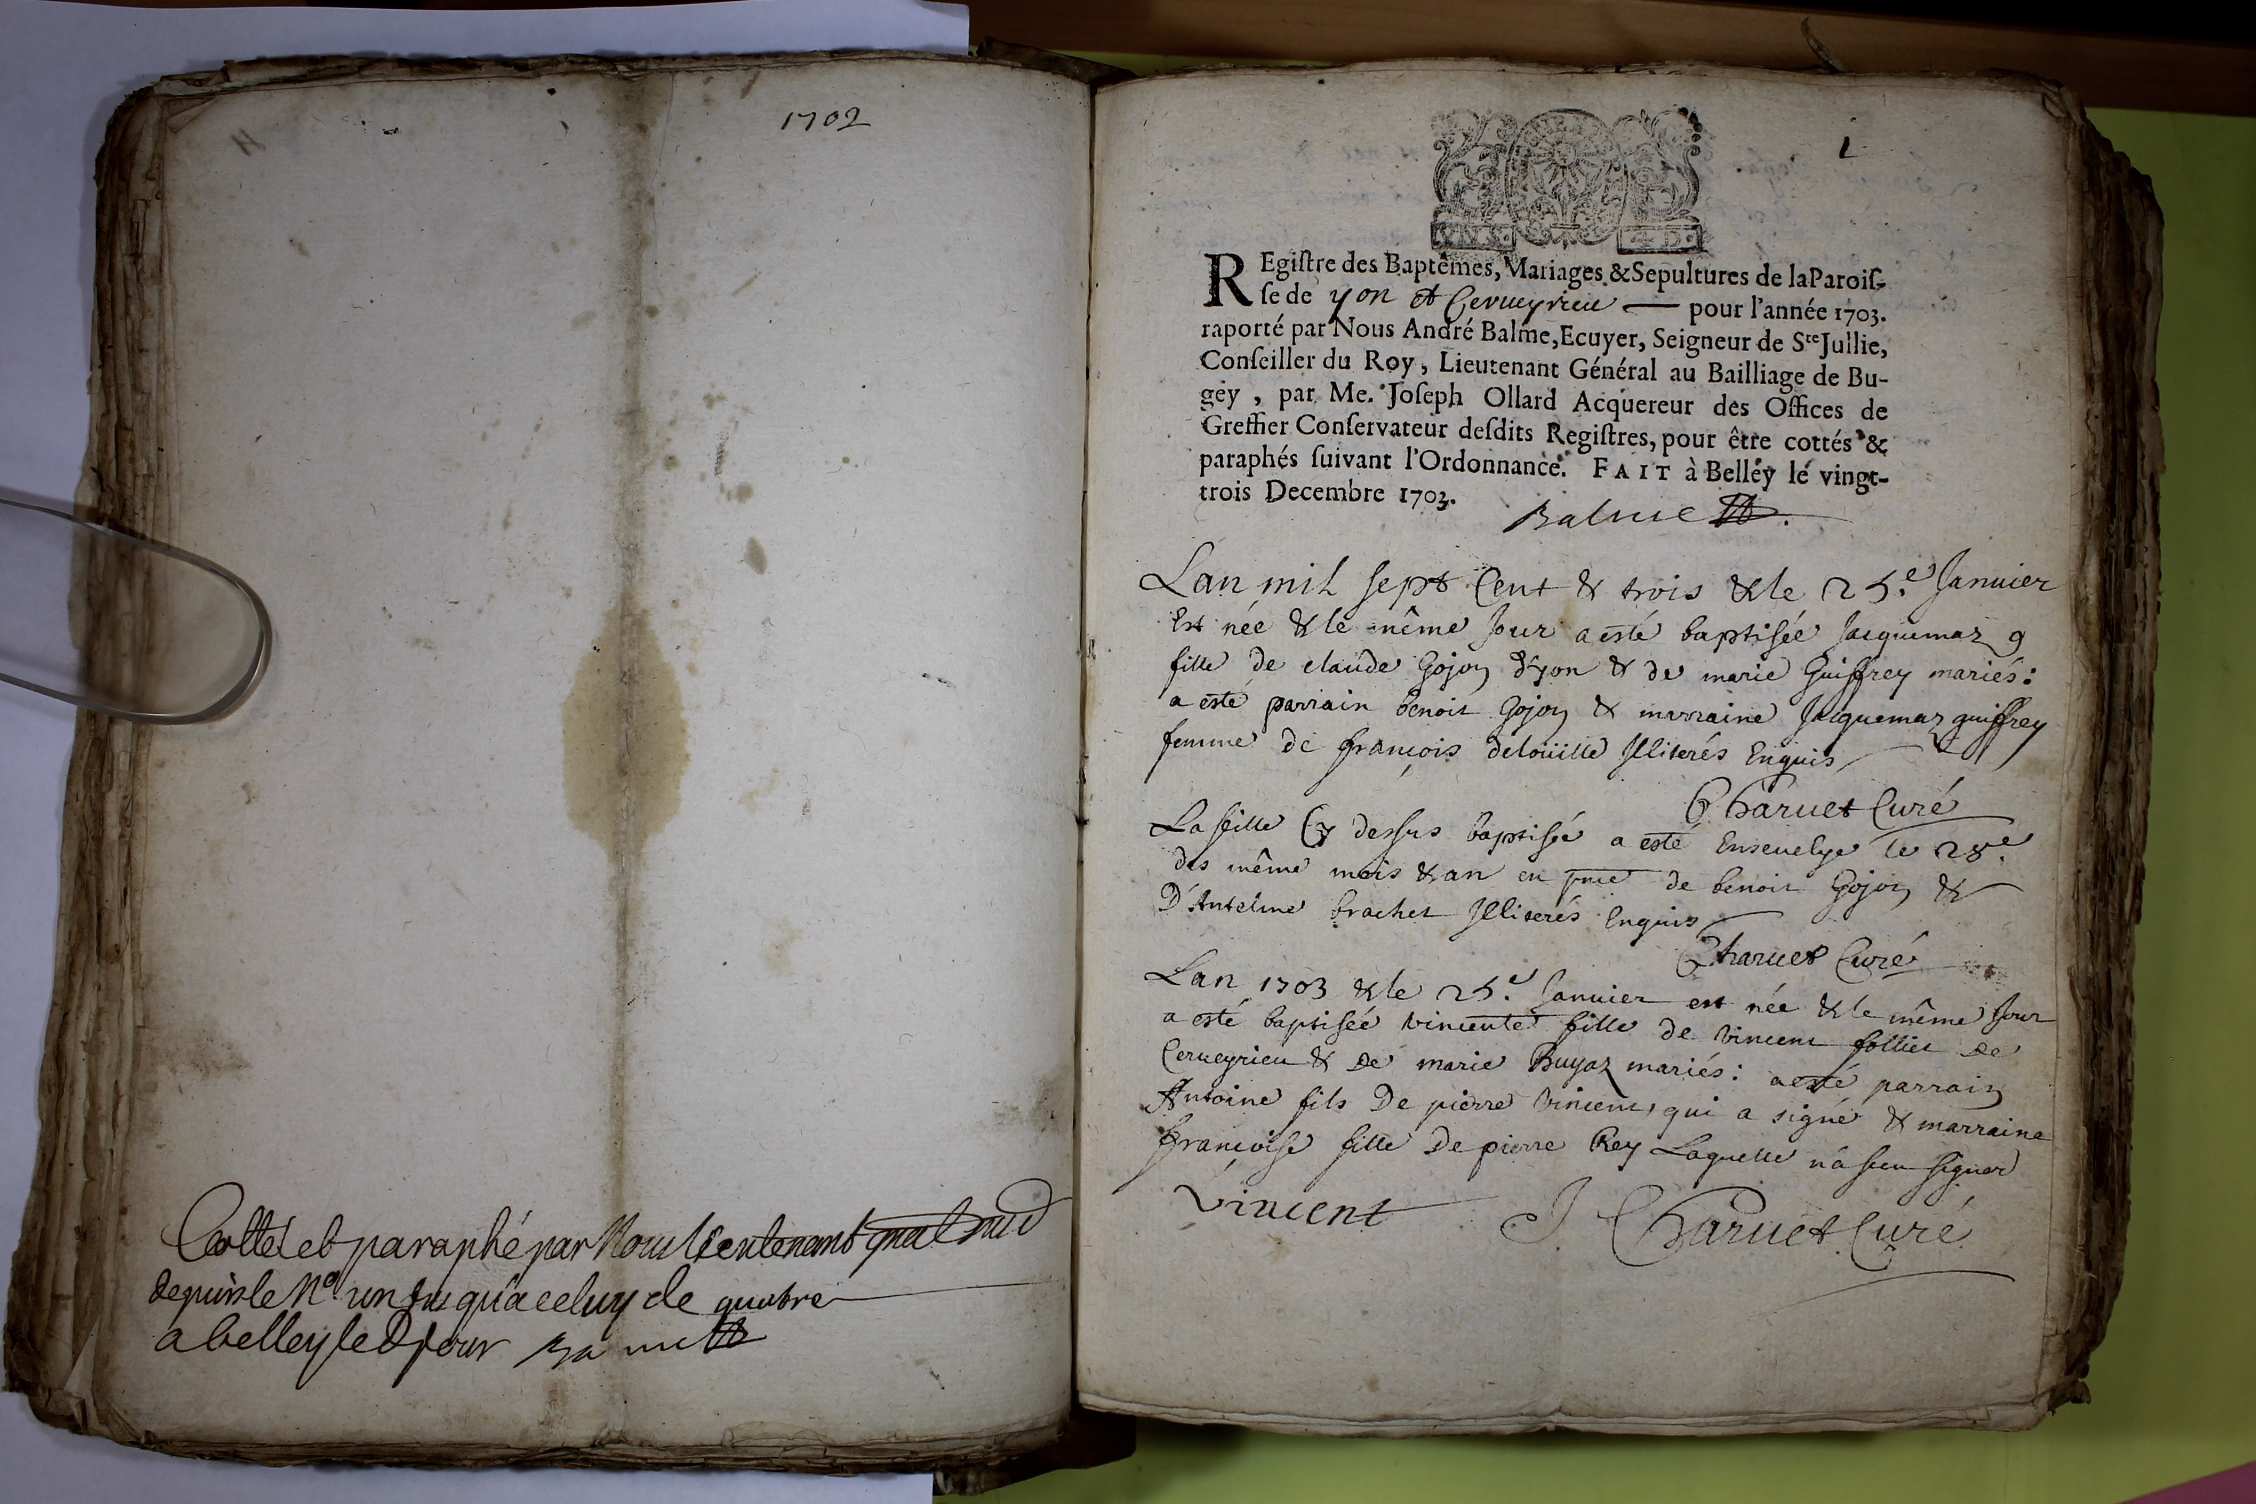 1702
Cotté et paraphé par Nous Lieutenant gnal
depuis le No un jusqu'a celuy de quatre
a belley led jour Balme
1
4 D.
REgiſtre des Baptêmes, Mariages & Sepultures de la Paroiſ-
ſe de yon et Cerueyrieu pour l'année 1703.
raporté par Nous André Balme, Ecuyer, Seigneur de Ste Jullie,
Conſeiller du Roy, Lieutenant Général au Bailliage de Bu-
gey, par Me. Joſeph Ollard Acquereur des Offices de
Greffier Conſervateur deſdits Regiſtres, pour être cottés &
paraphés ſuivant l'Ordonnance. FAIT à Belley le vingt-
trois Decembre 1703.
Balme
Lan mil sept Cent & trois & le 25.e Januier
Est née & le même Jour a esté baptisée Jacquemaz
fille de claude Gojon d'yon & de marie Guiffrey mariés:
a esté parrain benoit Gojon & marraine Jacquemaz guiffrey
femme de françois delouille Illiterés Enquis
Charuet Curé
La fille Cy dessus baptisée a esté Enseuelye le 28.e
des même mois & an en pnce de benoit Gojon &
D'Antelme brachet Illiterés Enquis
Charuet Curé
Lan 1703 & le 25.e Januier est née & le même Jour
a esté baptisée vincente fille de vincent follliet de
Cerueyrieu & De marie Buyaz mariés: a esté parrain
Antoine fils De pierre vincent, qui a signé & marraine
françoise fille De pierre Rey Laquelle n'a sceu signer
Vincent J. Charuet Curé